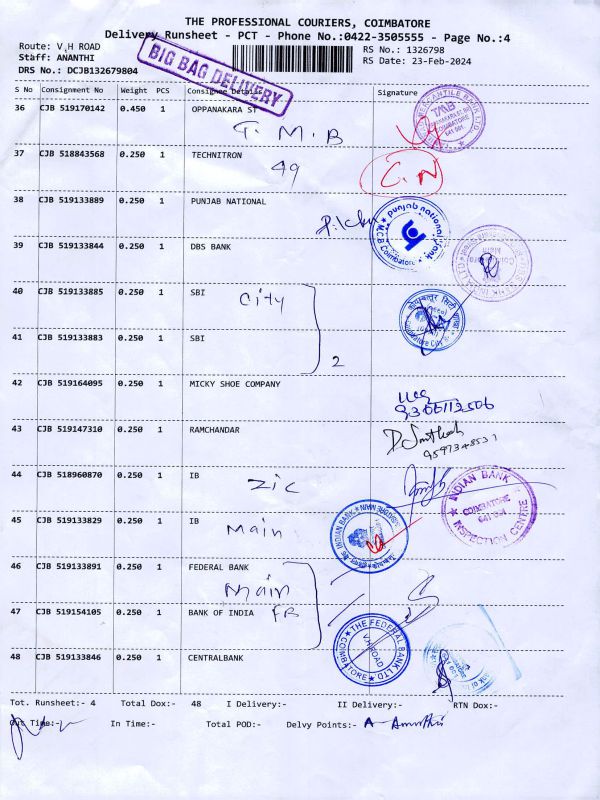 THE PROFESSIONAL COURIERS, COIMBATORE
Delivery Runsheet - PCT - Phone No.:0422-3505555 - Page No.:4
Route: V.H ROAD
RS No.: 1326798
Staff: ANANTHI
RS Date: 23-Feb-2024
DRS No.: DCJB132679804
BIG BAG DELIVERY
S No Consignment No Weight PCS Consignee Details Signature
36 CJB 519170142 0.450 1 OPPANAKARA ST
T. M. B
TMB
COIMBATORE
641 001
37 CJB 518843568 0.250 1 TECHNITRON
49
C.N
38 CJB 519133889 0.250 1 PUNJAB NATIONAL
punjab national bank
M.C.B. Coimbatore
39 CJB 519133844 0.250 1 DBS BANK
40 CJB 519133885 0.250 1 SBI
City
41 CJB 519133883 0.250 1 SBI
2
42 CJB 519164095 0.250 1 MICKY SHOE COMPANY
43 CJB 519147310 0.250 1 RAMCHANDAR
44 CJB 518960870 0.250 1 IB
Zic
INDIAN BANK
COIMBATORE
641 001
INSPECTION CENTRE
45 CJB 519133829 0.250 1 IB
Main
INDIAN BANK
46 CJB 519133891 0.250 1 FEDERAL BANK
Main
47 CJB 519154105 0.250 1 BANK OF INDIA
FB
THE FEDERAL BANK LTD
V.H.ROAD
COIMBATORE
48 CJB 519133846 0.250 1 CENTRALBANK
Tot. Runsheet:- 4 Total Dox:- 48 I Delivery:- II Delivery:- RTN Dox:-
Out Time:- In Time:- Total POD:- Delvy Points:-